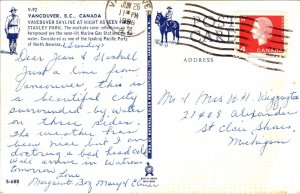 V-92
VANCOUVER, B.C., CANADA
VANCOUVER SKYLINE AT NIGHT AS SEEN FROM
STANLEY PARK. The multiple color reflections in the
foreground are from Marine Gas Stations on the
water. Considered as one of the leading Pacific Ports
of North America.
Sunday
Dear Jean & Haskell
Just a line from
Vancouver, this is
a beautiful city
surrounded by water
on three sides.
The weather has
been nice but I am
doctoring a bad head cold
will arrive in
tomorrow Love
Margaret, Mary & Elmer
S-688
JUN 26
PM
POST
ADDRESS
CANADA
4
Mr & Mrs W. H.
21408 Alexander
St Clair Shores
Michigan